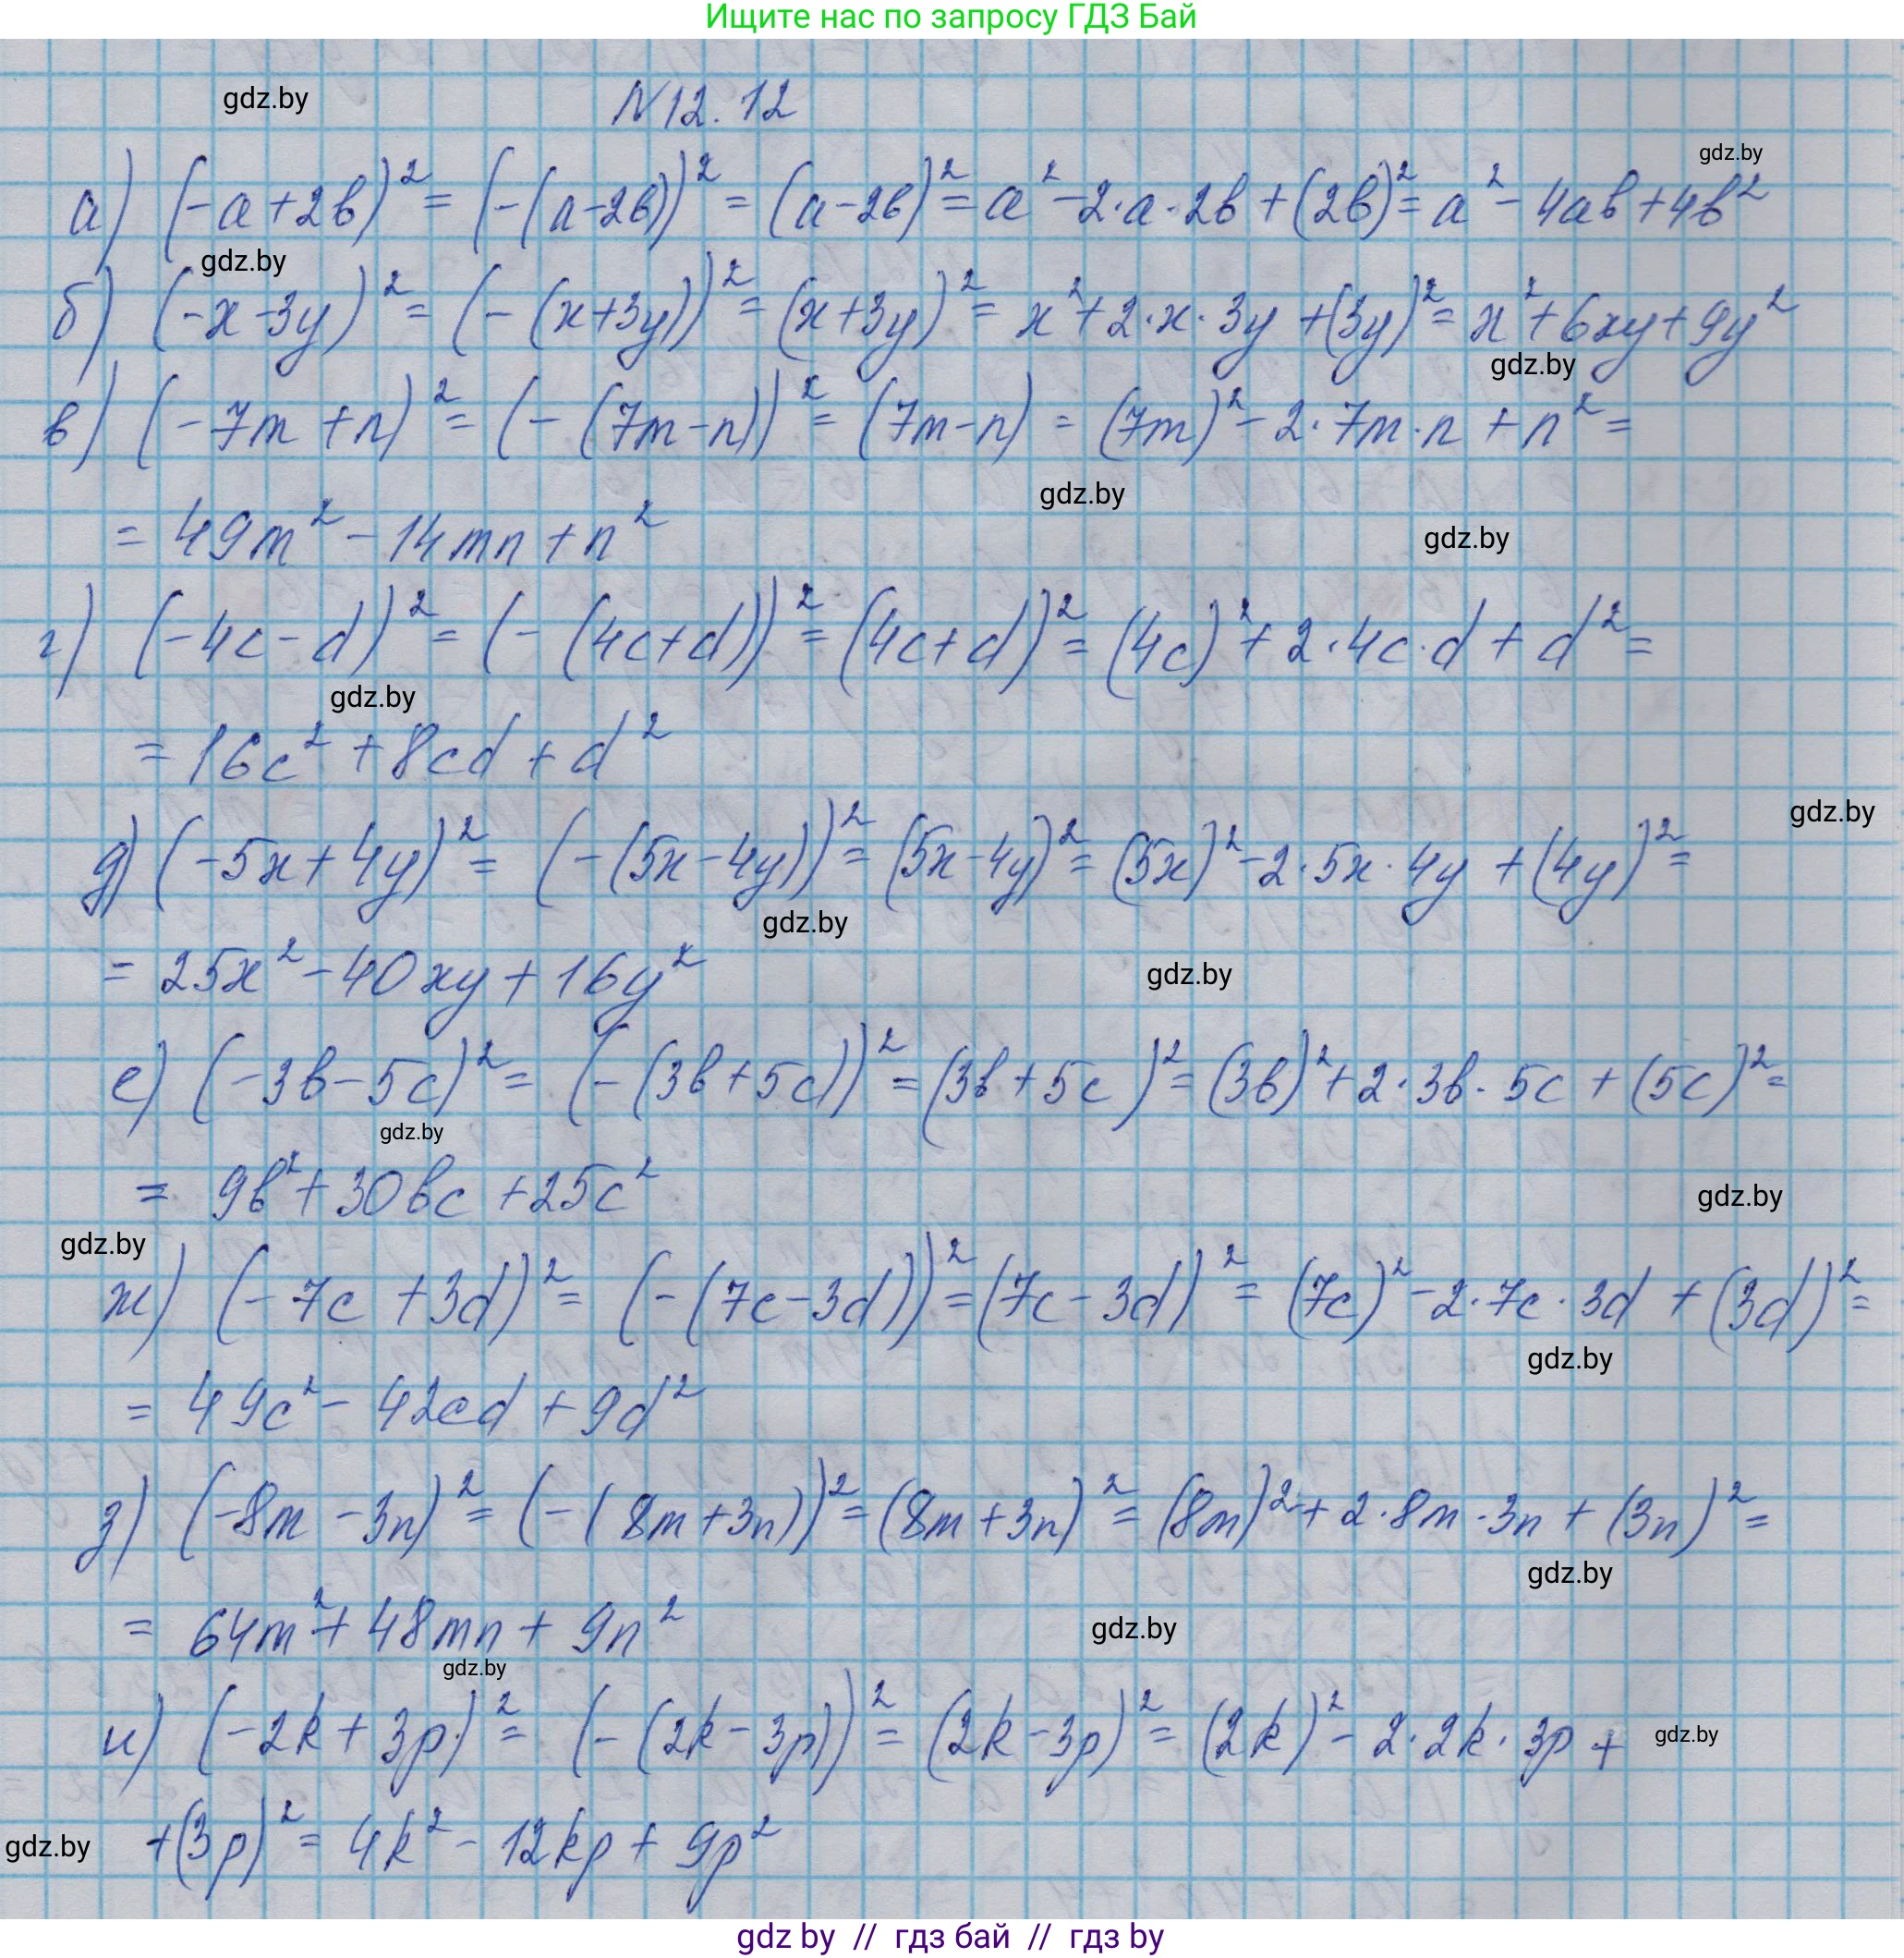 Ищите нас по запросу ГДЗ Бай
gdz.by N12.12
gdz.by
а) (-a+2в)² = (-(a-2в))² = (a-2в)² = a² - 2·a·2в + (2в)² = a² - 4aв + 4в²
gdz.by
б) (-x-3y)² = (-(x+3y))² = (x+3y)² = x² + 2·x·3y + (3y)² = x² + 6xy + 9y²
gdz.by
в) (-7m+n)² = (-(7m-n))² = (7m-n) = (7m)² - 2·7m·n + n² =
gdz.by
= 49m² - 14mn + n²
gdz.by
г) (-4c-d)² = (-(4c+d))² = (4c+d)² = (4c)² + 2·4c·d + d² =
gdz.by
= 16c² + 8cd + d²
gdz.by
д) (-5x+4y)² = (-(5x-4y))² = (5x-4y)² = (5x)² - 2·5x·4y + (4y)² =
gdz.by
= 25x² - 40xy + 16y²
gdz.by
е) (-3в-5c)² = (-(3в+5c))² = (3в+5c)² = (3в)² + 2·3в·5c + (5c)² =
gdz.by
= 9в² + 30вc + 25c²
gdz.by
gdz.by
ж) (-7c+3d)² = (-(7c-3d))² = (7c-3d)² = (7c)² - 2·7c·3d + (3d)² =
gdz.by
= 49c² - 42cd + 9d²
з) (-8m-3n)² = (-(8m+3n))² = (8m+3n)² = (8m)² + 2·8m·3n + (3n)² =
gdz.by
= 64m² + 48mn + 9n²
gdz.by
gdz.by
и) (-2k+3p)² = (-(2k-3p))² = (2k-3p)² = (2k)² - 2·2k·3p +
gdz.by
+(3p)² = 4k² - 12kp + 9p²
gdz.by
gdz by // гдз бай // гдз by